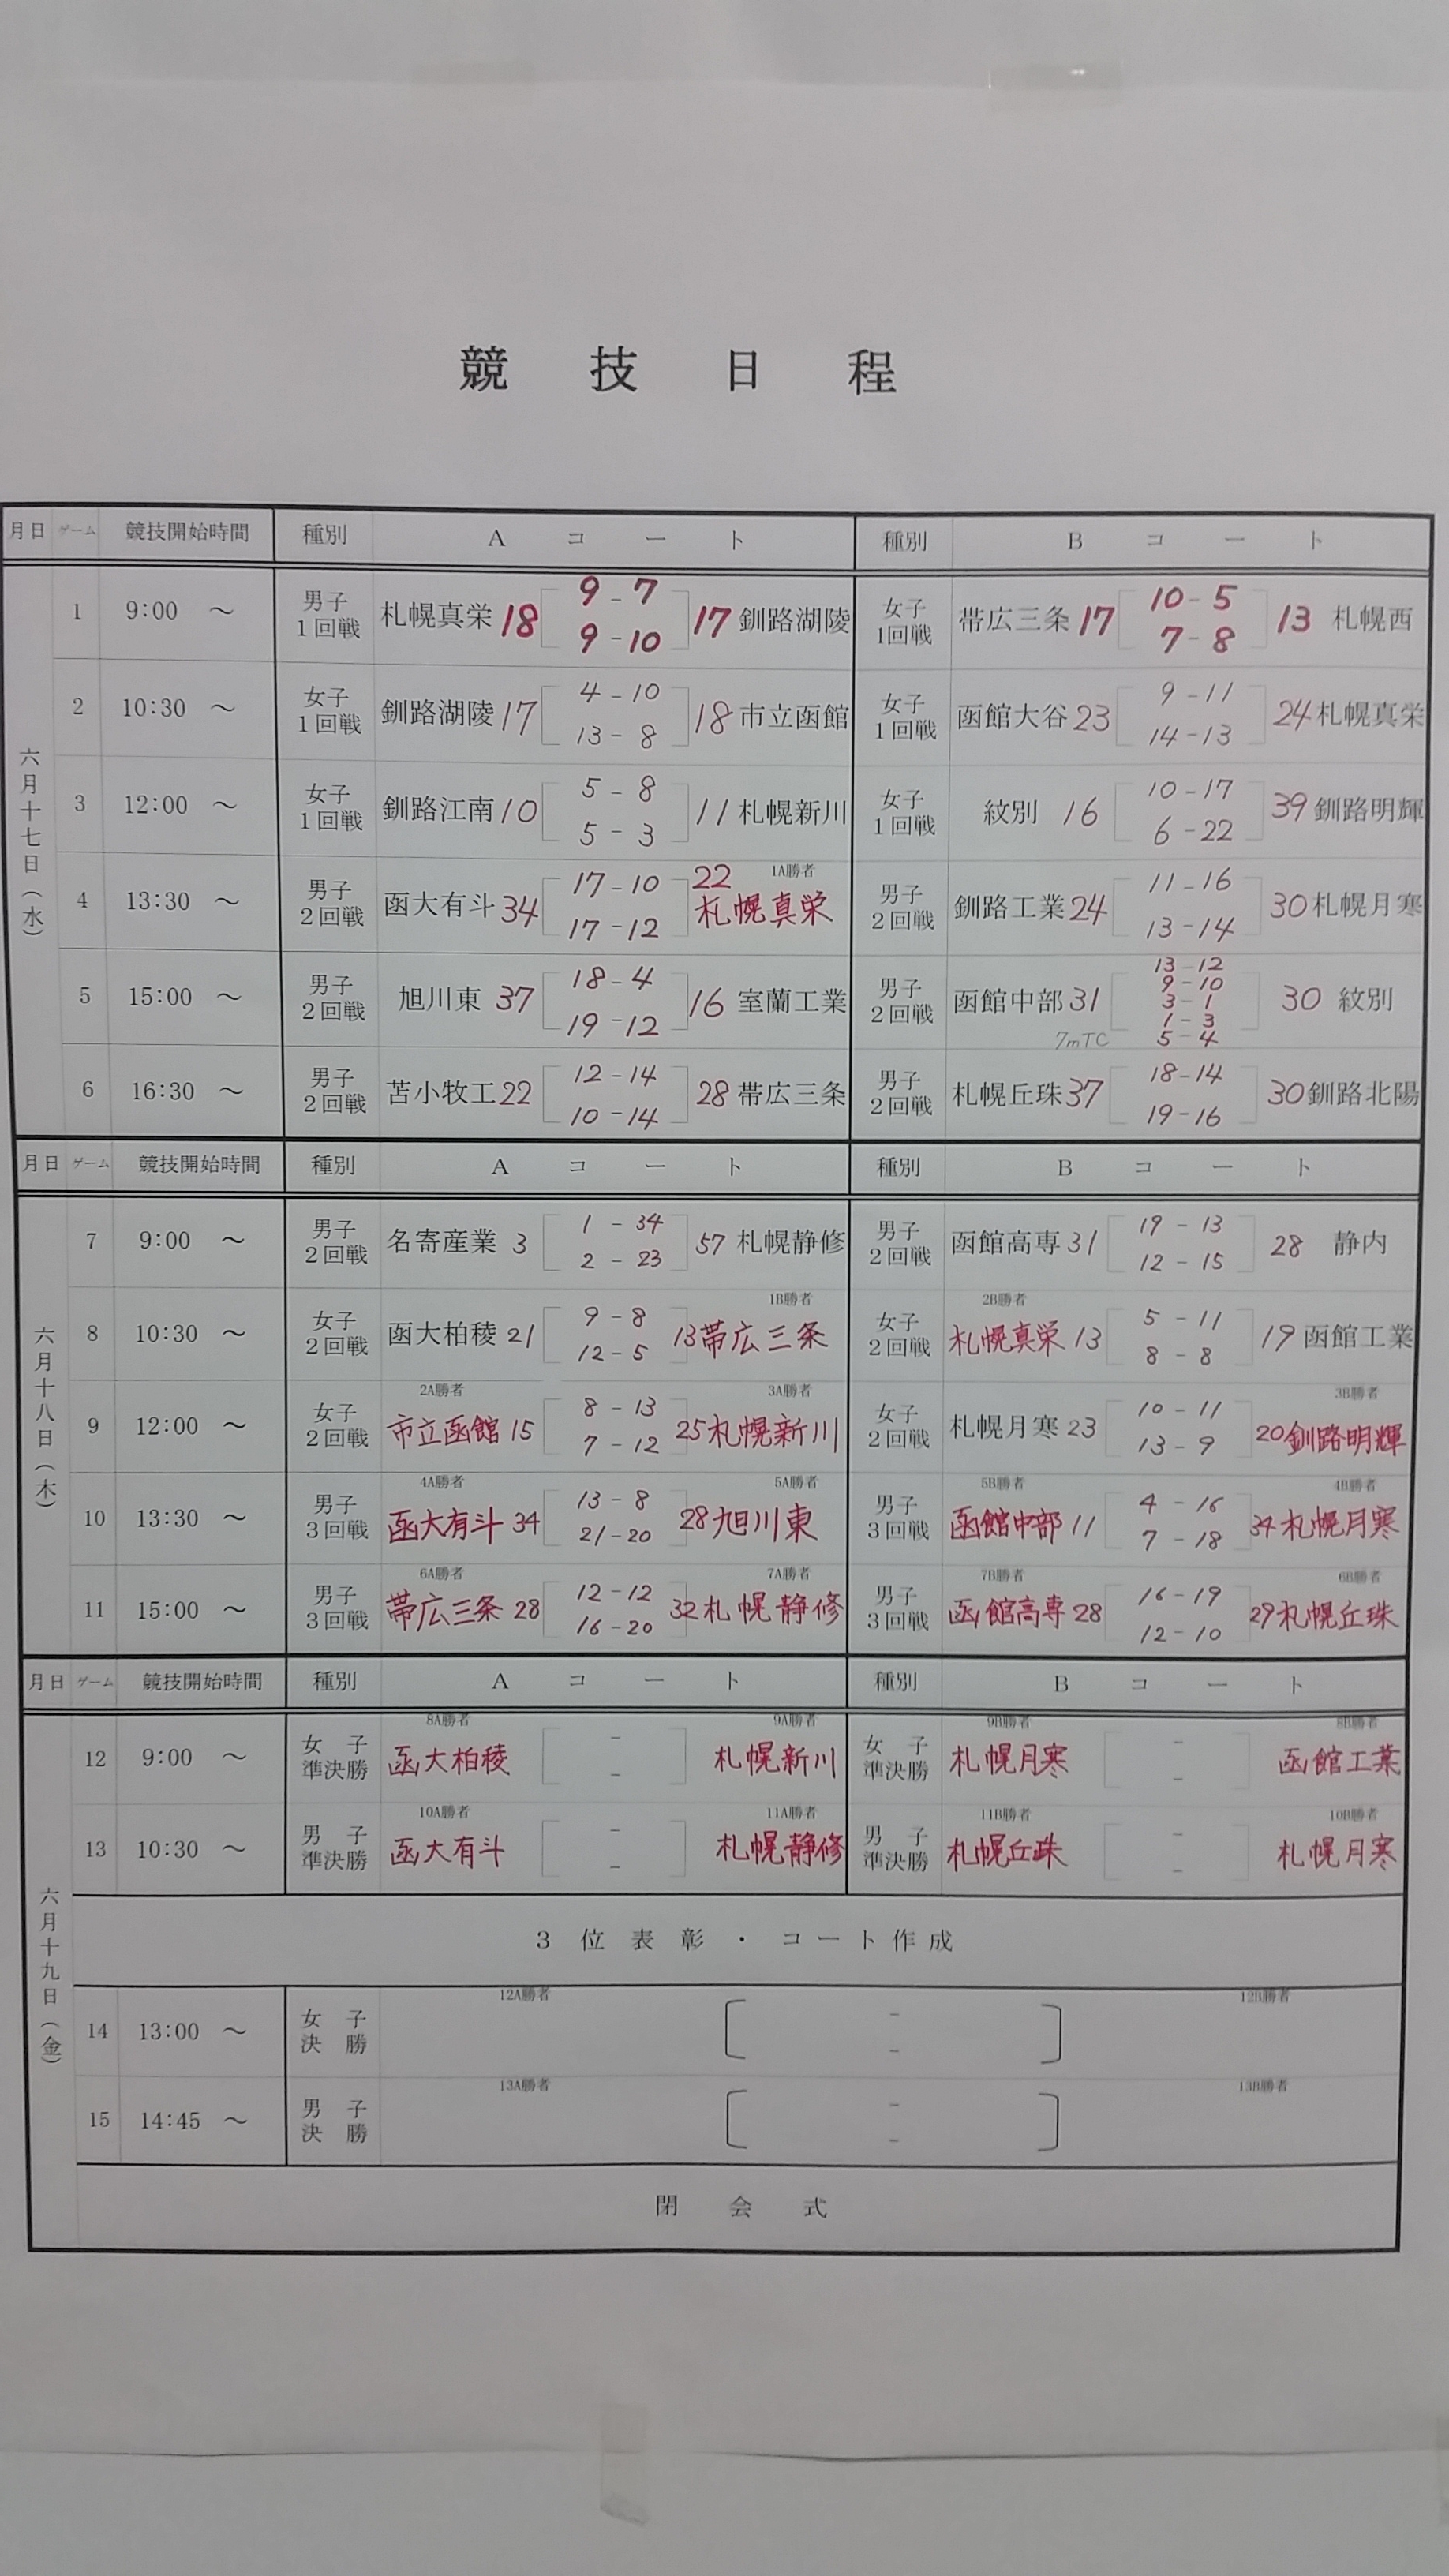 競技日程
月日 ゲーム 競技開始時間 種別 Aコート 種別 Bコート
六月十七日(水)
1 9:00 ～ 男子 1回戦 札幌真栄 18 9-7 9-10 17 釧路湖陵 女子 1回戦 帯広三条 17 10-5 7-8 13 札幌西
2 10:30 ～ 女子 1回戦 釧路湖陵 17 4-10 13-8 18 市立函館 女子 1回戦 函館大谷 23 9-11 14-13 24 札幌真栄
3 12:00 ～ 女子 1回戦 釧路江南 10 5-8 5-3 11 札幌新川 女子 1回戦 紋別 16 10-17 6-22 39 釧路明輝
4 13:30 ～ 男子 2回戦 函大有斗 34 17-10 17-12 22 1A勝者 札幌真栄 男子 2回戦 釧路工業 24 11-16 13-14 30 札幌月寒
5 15:00 ～ 男子 2回戦 旭川東 37 18-4 19-12 16 室蘭工業 男子 2回戦 函館中部 31 13-12 9-10 3-1 1-3 7mTC 5-4 30 紋別
6 16:30 ～ 男子 2回戦 苫小牧工 22 12-14 10-14 28 帯広三条 男子 2回戦 札幌丘珠 37 18-14 19-16 30 釧路北陽
月日 ゲーム 競技開始時間 種別 Aコート 種別 Bコート
六月十八日(木)
7 9:00 ～ 男子 2回戦 名寄産業 3 1-34 2-23 57 札幌静修 男子 2回戦 函館高専 31 19-13 12-15 28 静内
8 10:30 ～ 女子 2回戦 函大柏稜 21 9-8 12-5 13 1B勝者 帯広三条 女子 2回戦 2B勝者 札幌真栄 13 5-11 8-8 19 函館工業
9 12:00 ～ 女子 2回戦 2A勝者 市立函館 15 8-13 7-12 25 3A勝者 札幌新川 女子 2回戦 札幌月寒 23 10-11 13-9 20 3B勝者 釧路明輝
10 13:30 ～ 男子 3回戦 4A勝者 函大有斗 34 13-8 21-20 28 5A勝者 旭川東 男子 3回戦 5B勝者 函館中部 11 4-16 7-18 34 4B勝者 札幌月寒
11 15:00 ～ 男子 3回戦 6A勝者 帯広三条 28 12-12 16-20 32 7A勝者 札幌静修 男子 3回戦 7B勝者 函館高専 28 16-19 12-10 29 6B勝者 札幌丘珠
月日 ゲーム 競技開始時間 種別 Aコート 種別 Bコート
六月十九日(金)
12 9:00 ～ 女子 準決勝 8A勝者 函大柏稜 - - 9A勝者 札幌新川 女子 準決勝 9B勝者 札幌月寒 - - 8B勝者 函館工業
13 10:30 ～ 男子 準決勝 10A勝者 函大有斗 - - 11A勝者 札幌静修 男子 準決勝 11B勝者 札幌丘珠 - - 10B勝者 札幌月寒
3位表彰・コート作成
14 13:00 ～ 女子 決勝 12A勝者 - - 12B勝者
15 14:45 ～ 男子 決勝 13A勝者 - - 13B勝者
閉会式